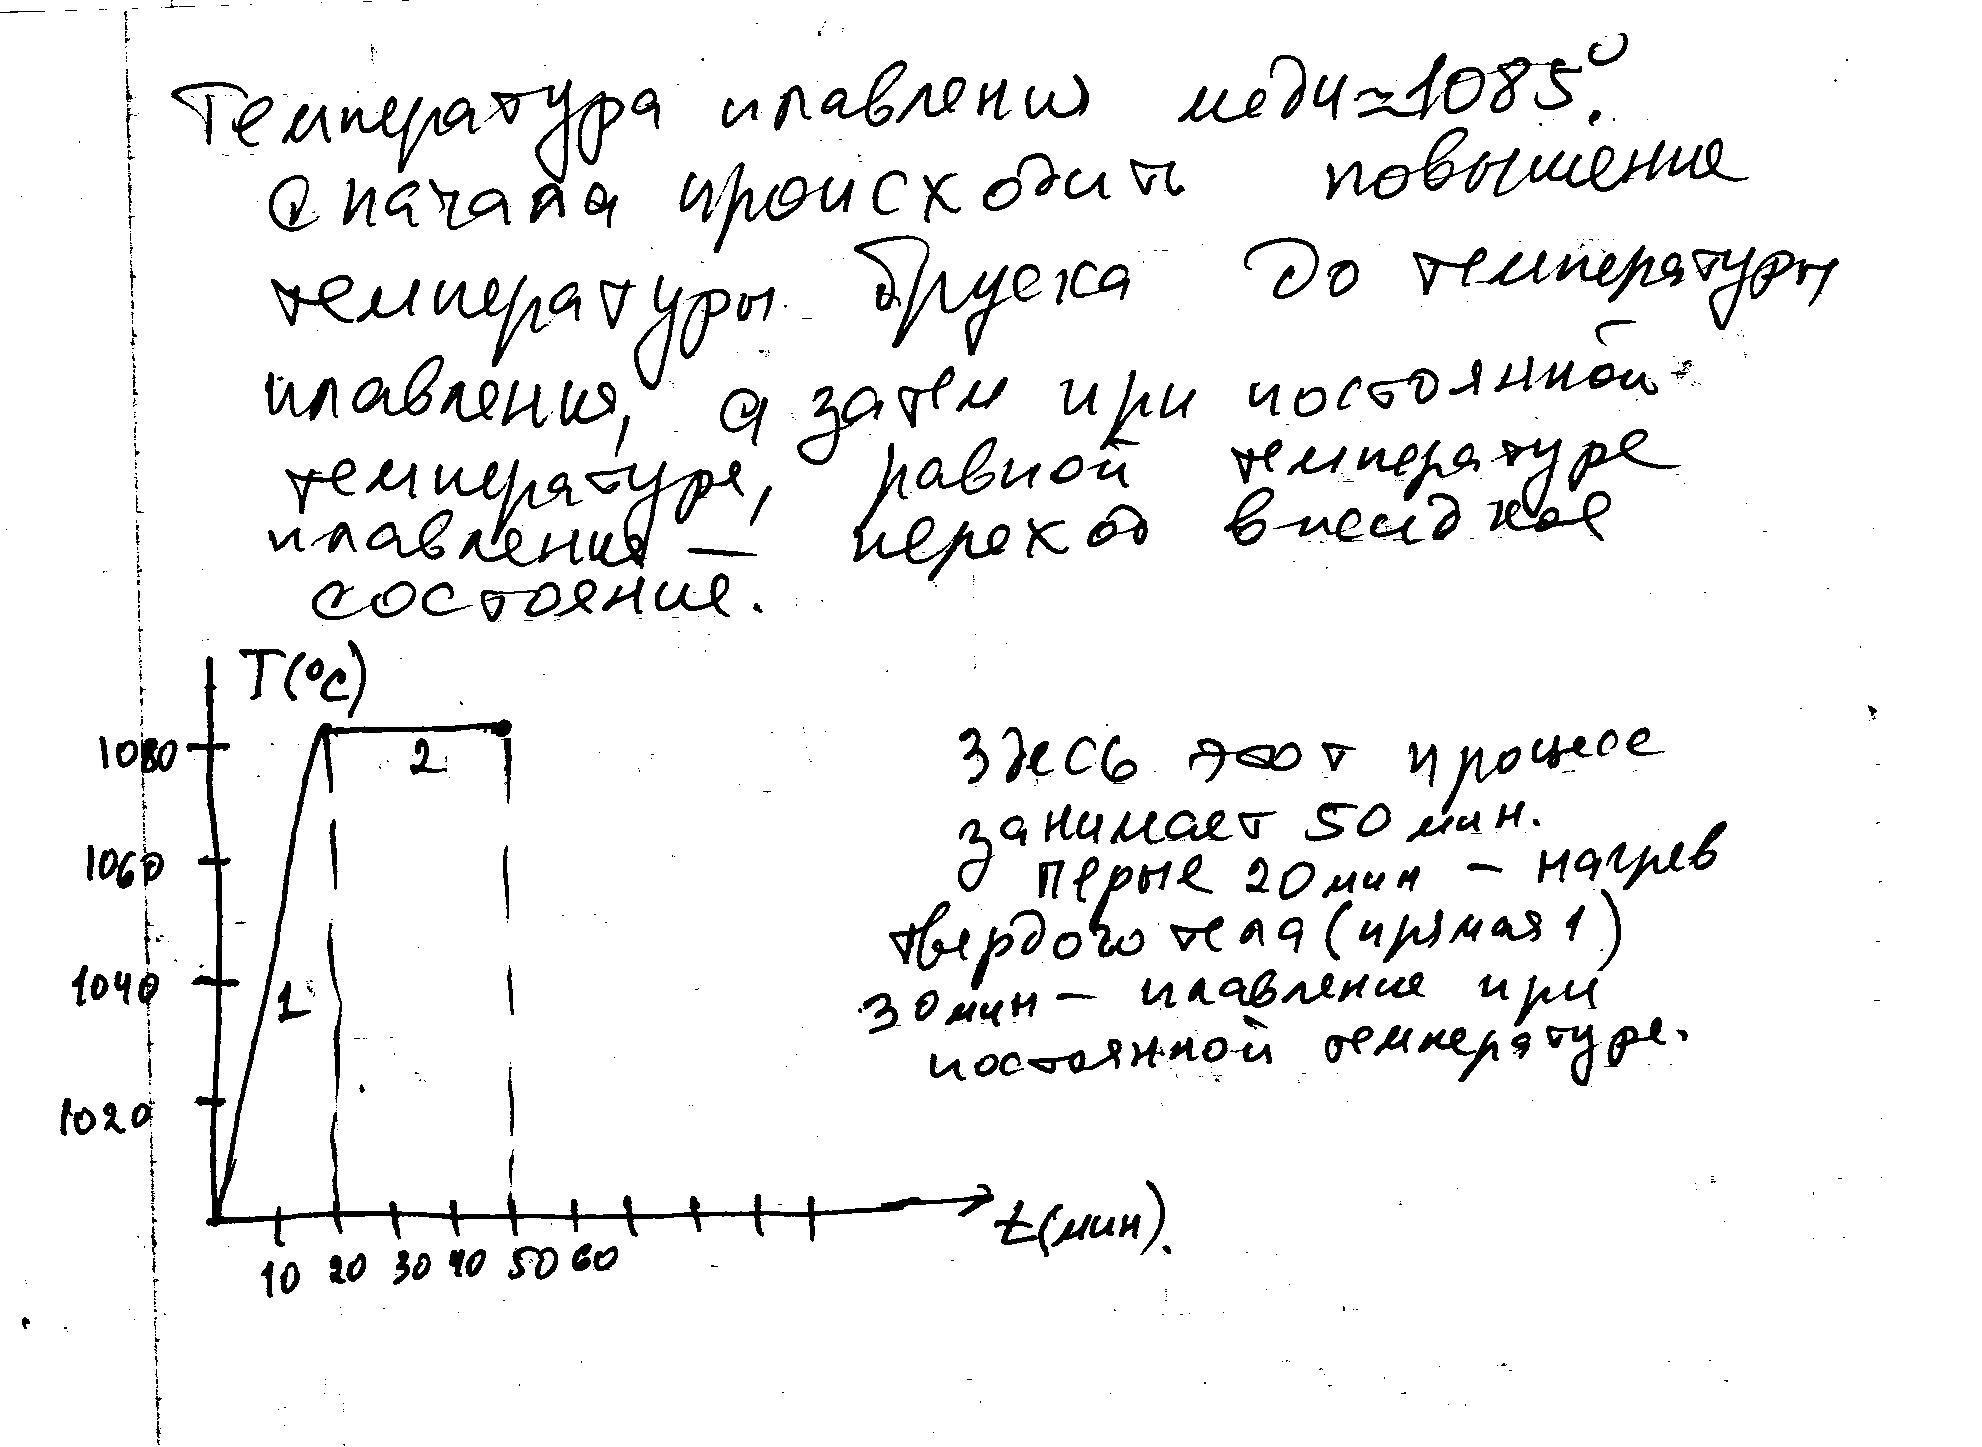 Температура плавления меди ≈ 1085°.
Сначала происходит повышение
температуры бруска до температуры
плавления, а затем при постоянной
температуре, равной температуре
плавления — переход в жидкое
состояние.
T(°C)
1080
2
1060
1040
1
1020
10 20 30 40 50 60
t(мин).
Здесь этот процесс
занимает 50 мин.
Перые 20 мин — нагрев
твердого тела (прямая 1)
30 мин — плавление при
постоянной температуре.